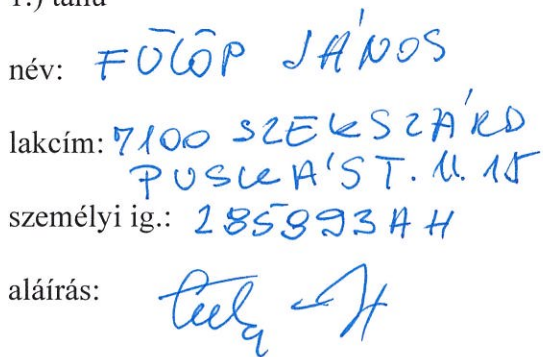 1.) tanú
név: FÜLÖP JÁNOS
lakcím: 7100 SZEKSZÁRD
PUSKÁS T. U. 15
személyi ig.: 285893AH
aláírás: